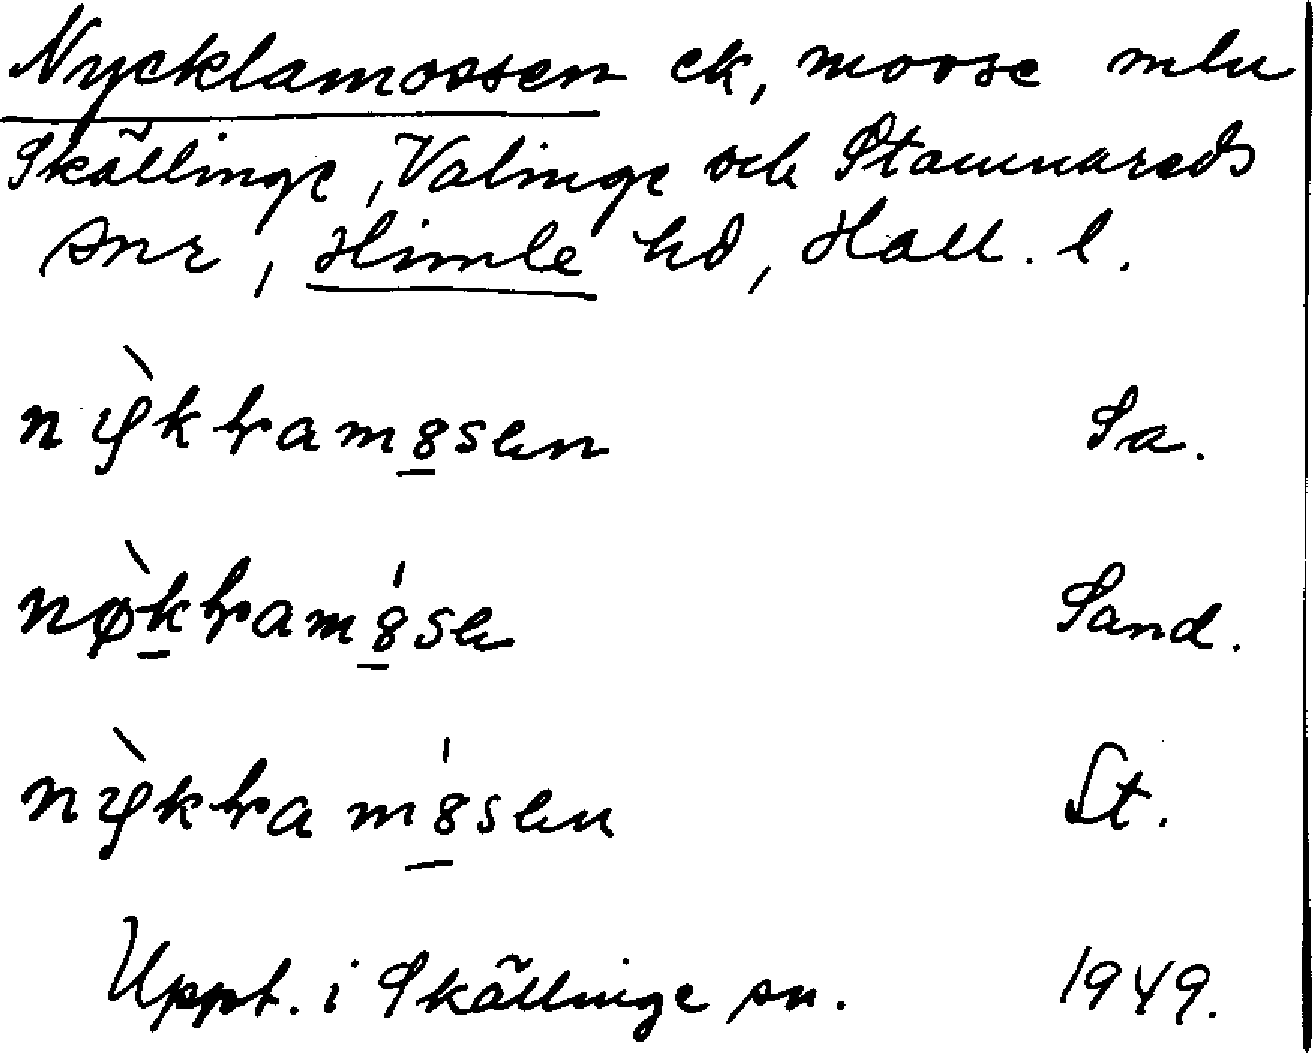 Nycklamossen ek, mosse mln
Skällinge, Valinge och Stamnareds
snr, Himle hd, Hall. l.
nỳklamósen Sa.
nø̀klamóse Sand.
nỳklamósen St.
Uppt. i Skällinge sn. 1949.